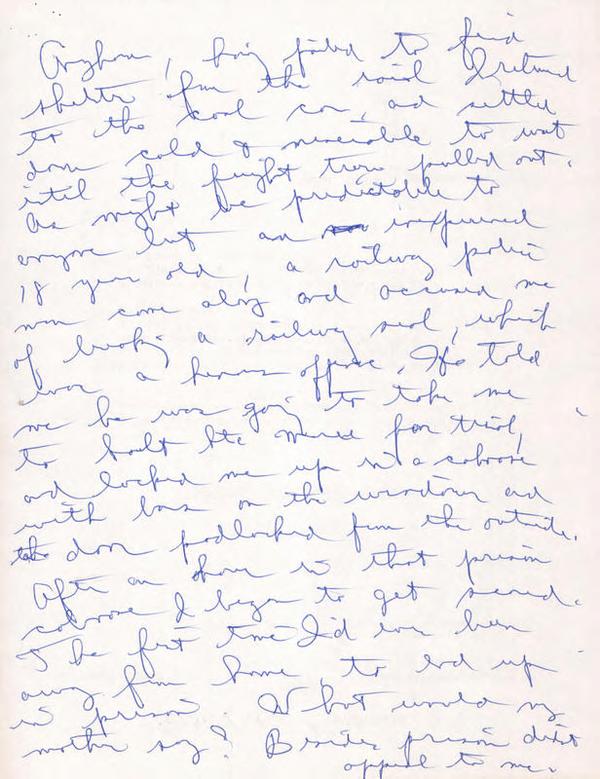 Anyhow, having failed to find
shelter from the rain I returned
to the coal car, and settled
down cold & miserable to wait
until the freight train pulled out.
As might be predictable to
anyone but an inexperienced
18 year old, a railway police
man came along and accused me
of breaking a railway seal, which
was a heinous offence. He told
me he was going to take me
to Sault Ste Marie for trial,
and locked me up in a caboose
with bars on the windows and
the door padlocked from the outside.
After an hour in that prison
caboose I began to get scared.
The first time I'd ever been
away from home, to end up
in prison. What would my
mother say? Besides prison didn't
appeal to me.